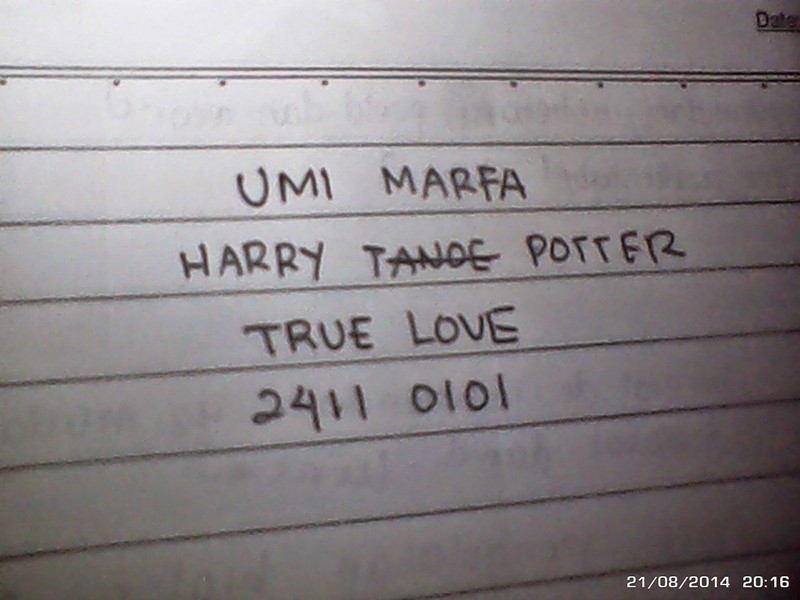 Date:
UMI MARFA
HARRY TANOE POTTER
TRUE LOVE
2411 0101
21/08/2014 20:16